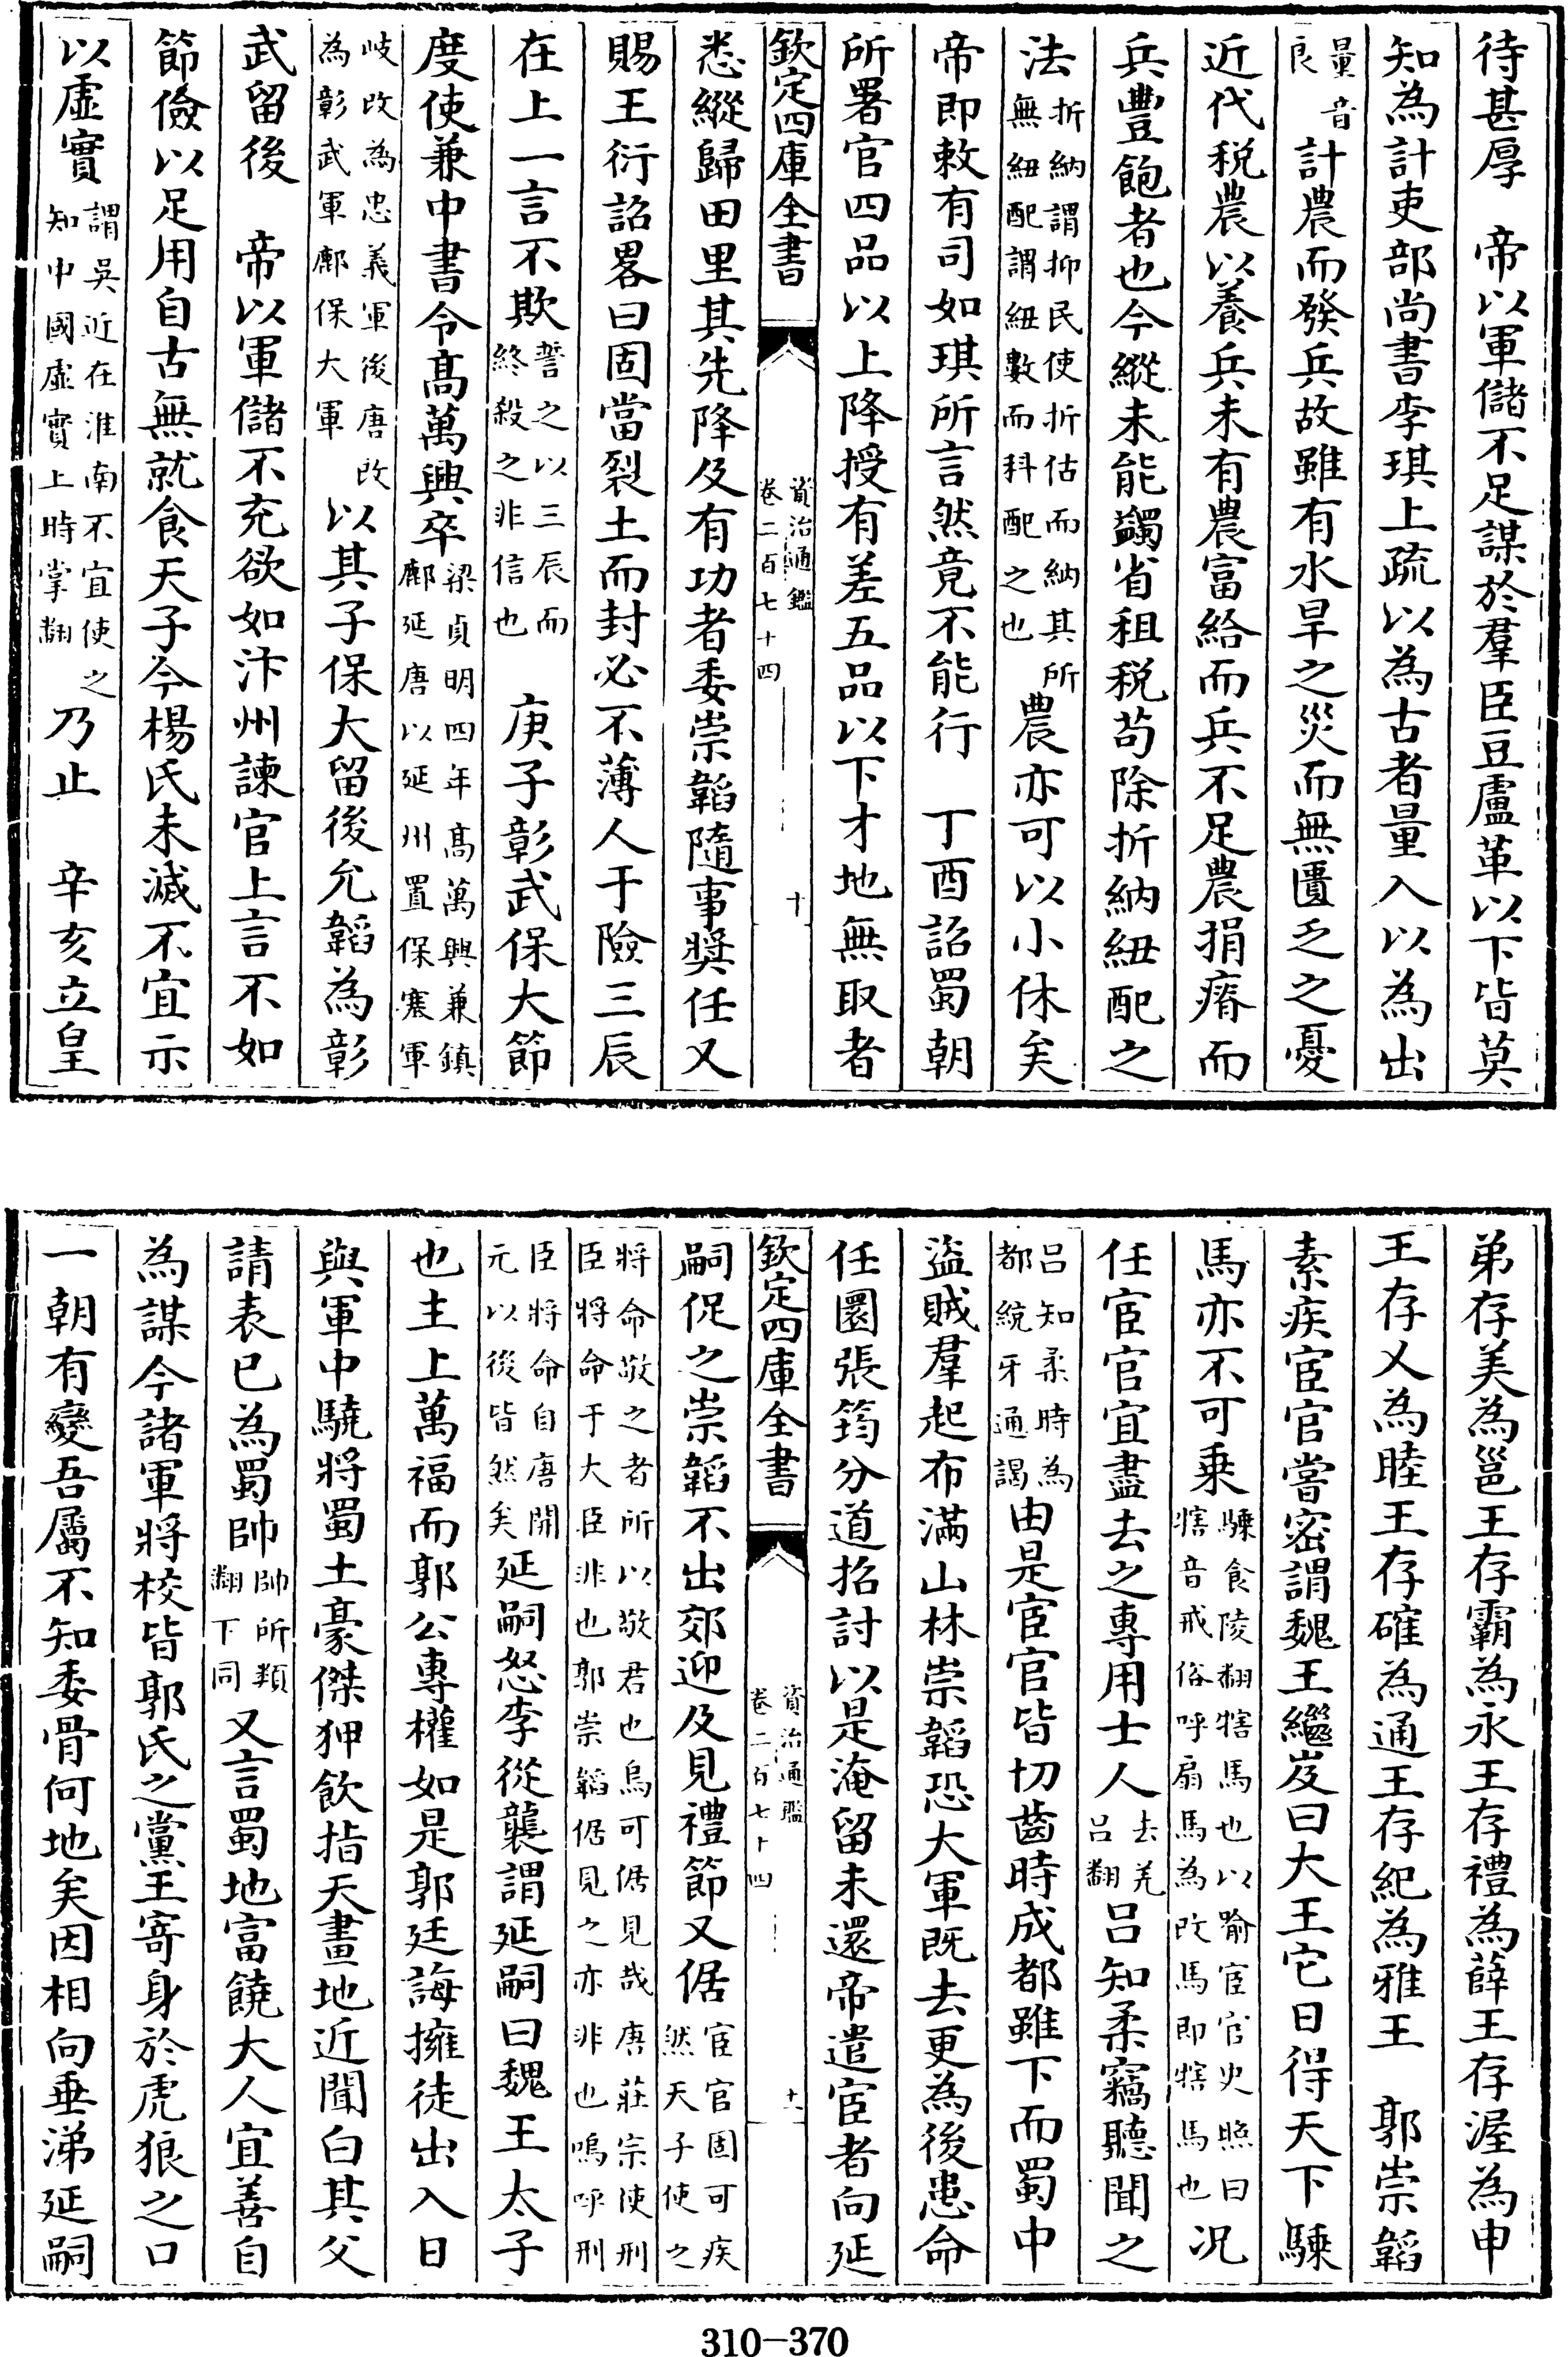 待甚厚　帝以軍儲不足謀於羣臣豆盧革以下皆莫
知為計吏部尚書李琪上疏以為古者量入以為出
量音良計農而發兵故雖有水旱之災而無匱乏之憂
近代税農以養兵未有農富給而兵不足農捐瘠而
兵豐飽者也今縱未能蠲省租税苟除折納紐配之
法折納謂抑民使折估而納其所無紐配謂紐數而科配之也農亦可以小休矣
帝即敕有司如琪所言然竟不能行　丁酉詔蜀朝
所署官四品以上降授有差五品以下才地無取者
欽定四庫全書　資治通鑑卷二百七十四　十
悉縱歸田里其先降及有功者委崇韜隨事奬任又
賜王衍詔畧曰固當裂土而封必不薄人于險三辰
在上一言不欺誓之以三辰而終殺之非信也　庚子彰武保大節
度使兼中書令髙萬興卒梁貞明四年髙萬興兼鎮鄜延唐以延州置保塞軍
岐改為忠義軍後唐改為彰武軍鄜保大軍以其子保大留後允韜為彰
武留後　帝以軍儲不充欲如汴州諫官上言不如
節儉以足用自古無就食天子今楊氏未滅不宜示
以虚實謂吳近在淮南不宜使之知中國虚實上時掌翻乃止　辛亥立皇
弟存美為邕王存霸為永王存禮為薛王存渥為申
王存乂為睦王存確為通王存紀為雅王　郭崇韜
素疾宦官嘗密謂魏王繼岌曰大王它日得天下騬
馬亦不可乗騬食陵翻犗馬也以喻宦官史炤曰犗音戒俗呼扇馬為改馬即犗馬也况
任宦官宜盡去之專用士人去羌吕翻吕知柔竊聽聞之
吕知柔時為都統牙通謁由是宦官皆切齒時成都雖下而蜀中
盜賊羣起布滿山林崇韜恐大軍既去更為後患命
任圜張筠分道招討以是淹留未還帝遣宦者向延
欽定四庫全書　資治通鑑卷二百七十四　十一
嗣促之崇韜不出郊迎及見禮節又倨宦官固可疾然天子使之
將命敬之者所以敬君也烏可倨見哉唐莊宗使刑臣將命于大臣非也郭崇韜倨見之亦非也嗚呼刑
臣將命自唐開元以後皆然矣延嗣怒李從襲謂延嗣曰魏王太子
也主上萬福而郭公專權如是郭廷誨擁徒出入日
與軍中驍將蜀土豪傑狎飲指天畫地近聞白其父
請表已為蜀帥帥所類翻下同又言蜀地富饒大人宜善自
為謀今諸軍將校皆郭氏之黨王寄身於虎狼之口
一朝有變吾屬不知委骨何地矣因相向垂涕延嗣
310-370